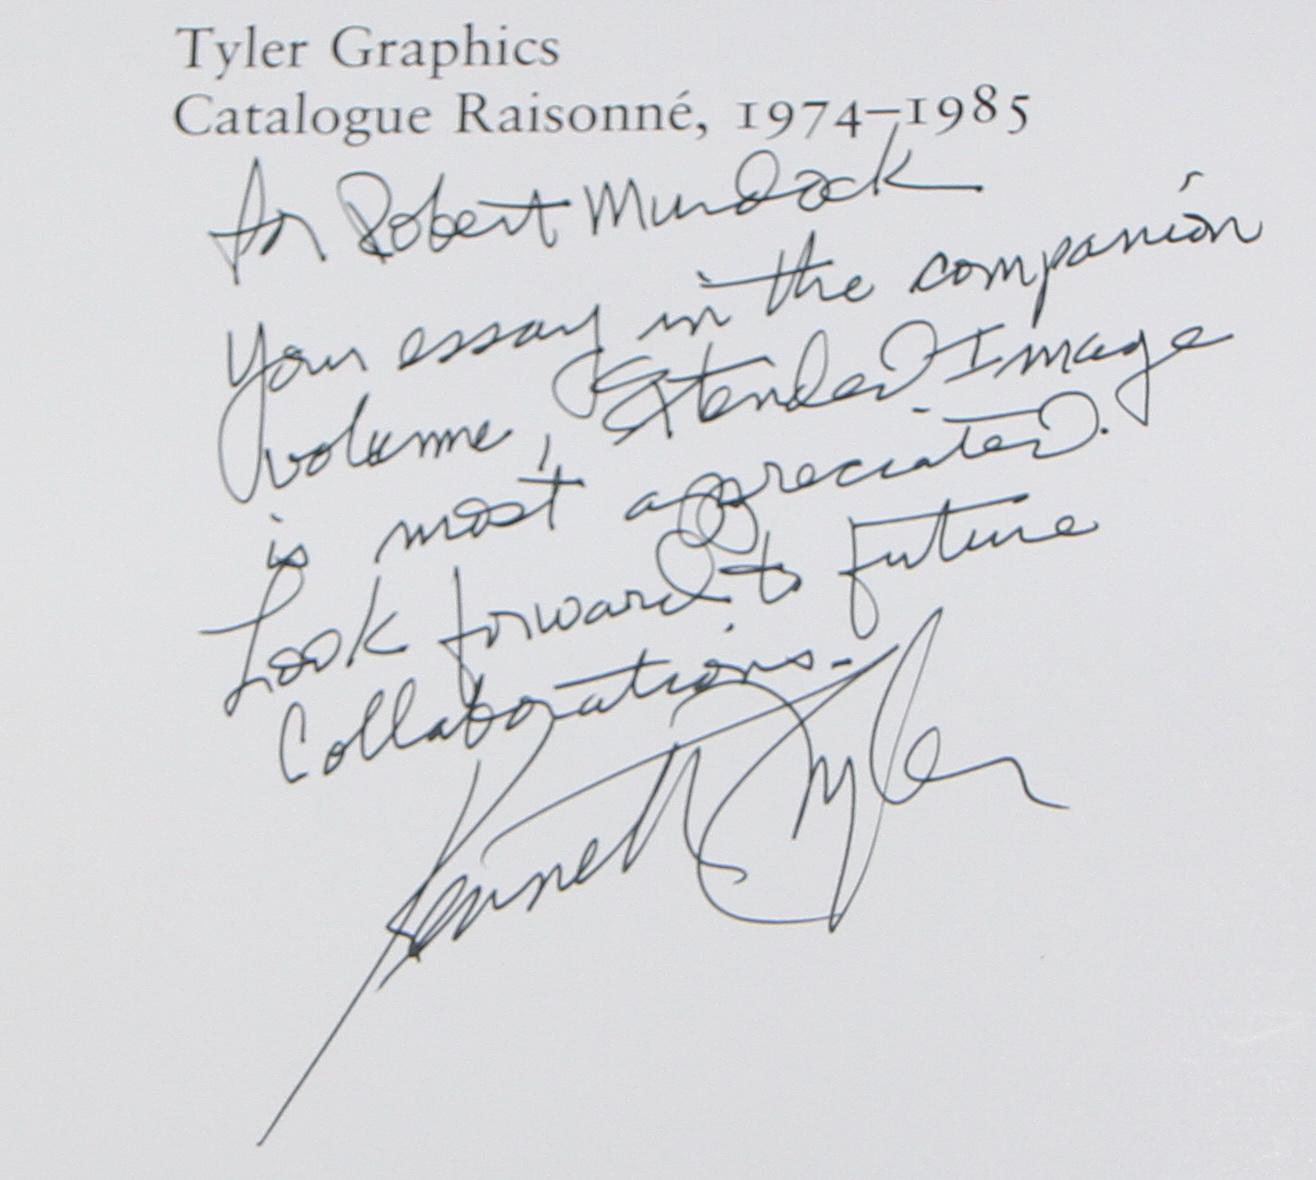 Tyler Graphics
Catalogue Raisonné, 1974–1985
for Robert Murdock
Your essay in the companion
volume, Extended Image
is most appreciated.
Look forward to future
Collaborations.-
Kenneth Tyler